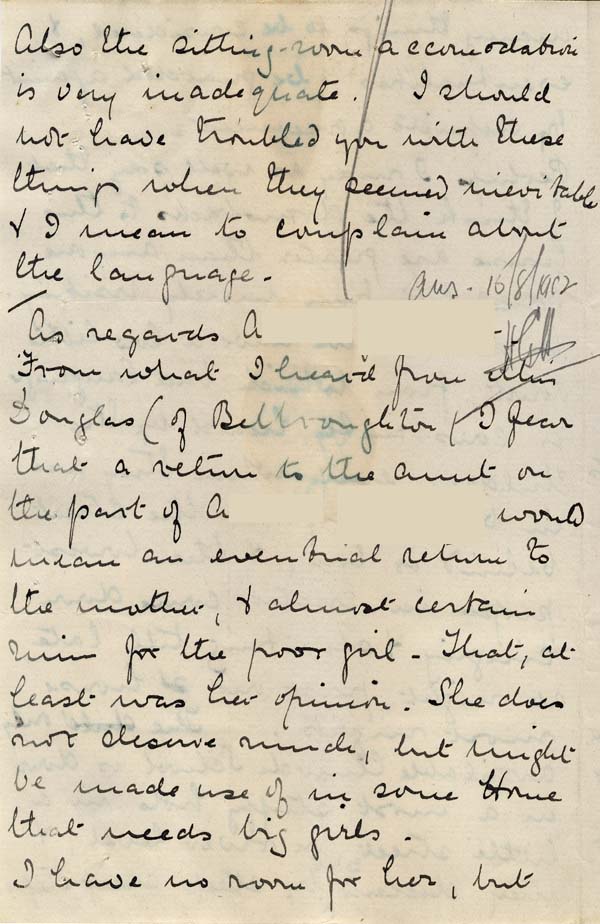 Also the sitting-room accomodation
is very inadequate. I should
not have troubled you with these
things when they seemed inevitable
& I mean to complain about
the language.
Ans. 16/8/1912
As regards A
From what I heard from Miss
Douglas (of Belbroughton) I fear
that a return to the aunt on
the part of A would
mean an eventual return to
the mother, & almost certain
ruin for the poor girl. That, at
least was her opinion. She does
not deserve much, but might
be made use of in some Home
that needs big girls.
I have no room for her, but